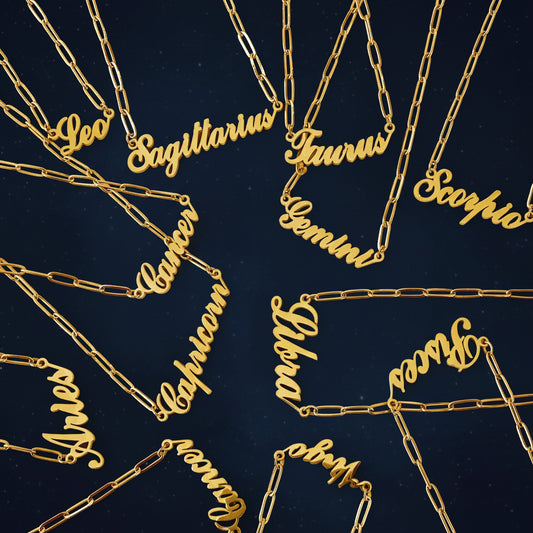 Leo
Sagittarius
Taurus
Scorpio
Cancer
Gemini
Capricorn
Libra
Pisces
Aries
Cancer
Virgo